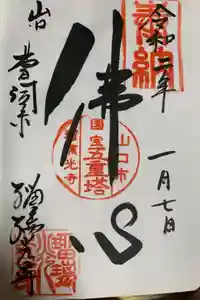 奉納
令和二年
一月七日
佛心
山口市
国宝五重塔
瑠璃光寺
曹洞宗
瑠璃光寺